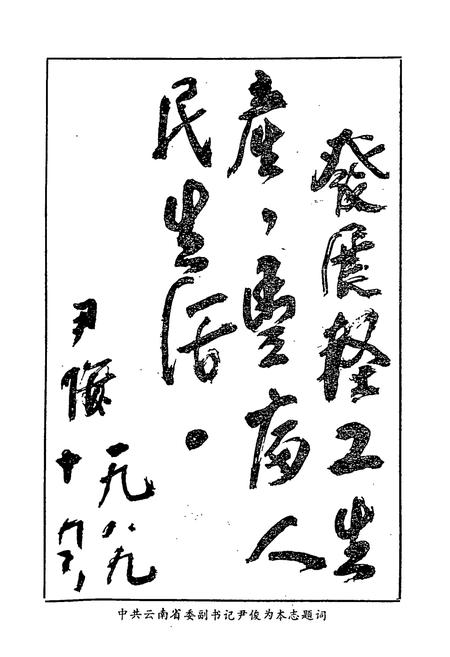 發展轻工生
産，豐富人
民生活。
尹俊
一九八九
十、九、
中共云南省委副书记尹俊为本志题词